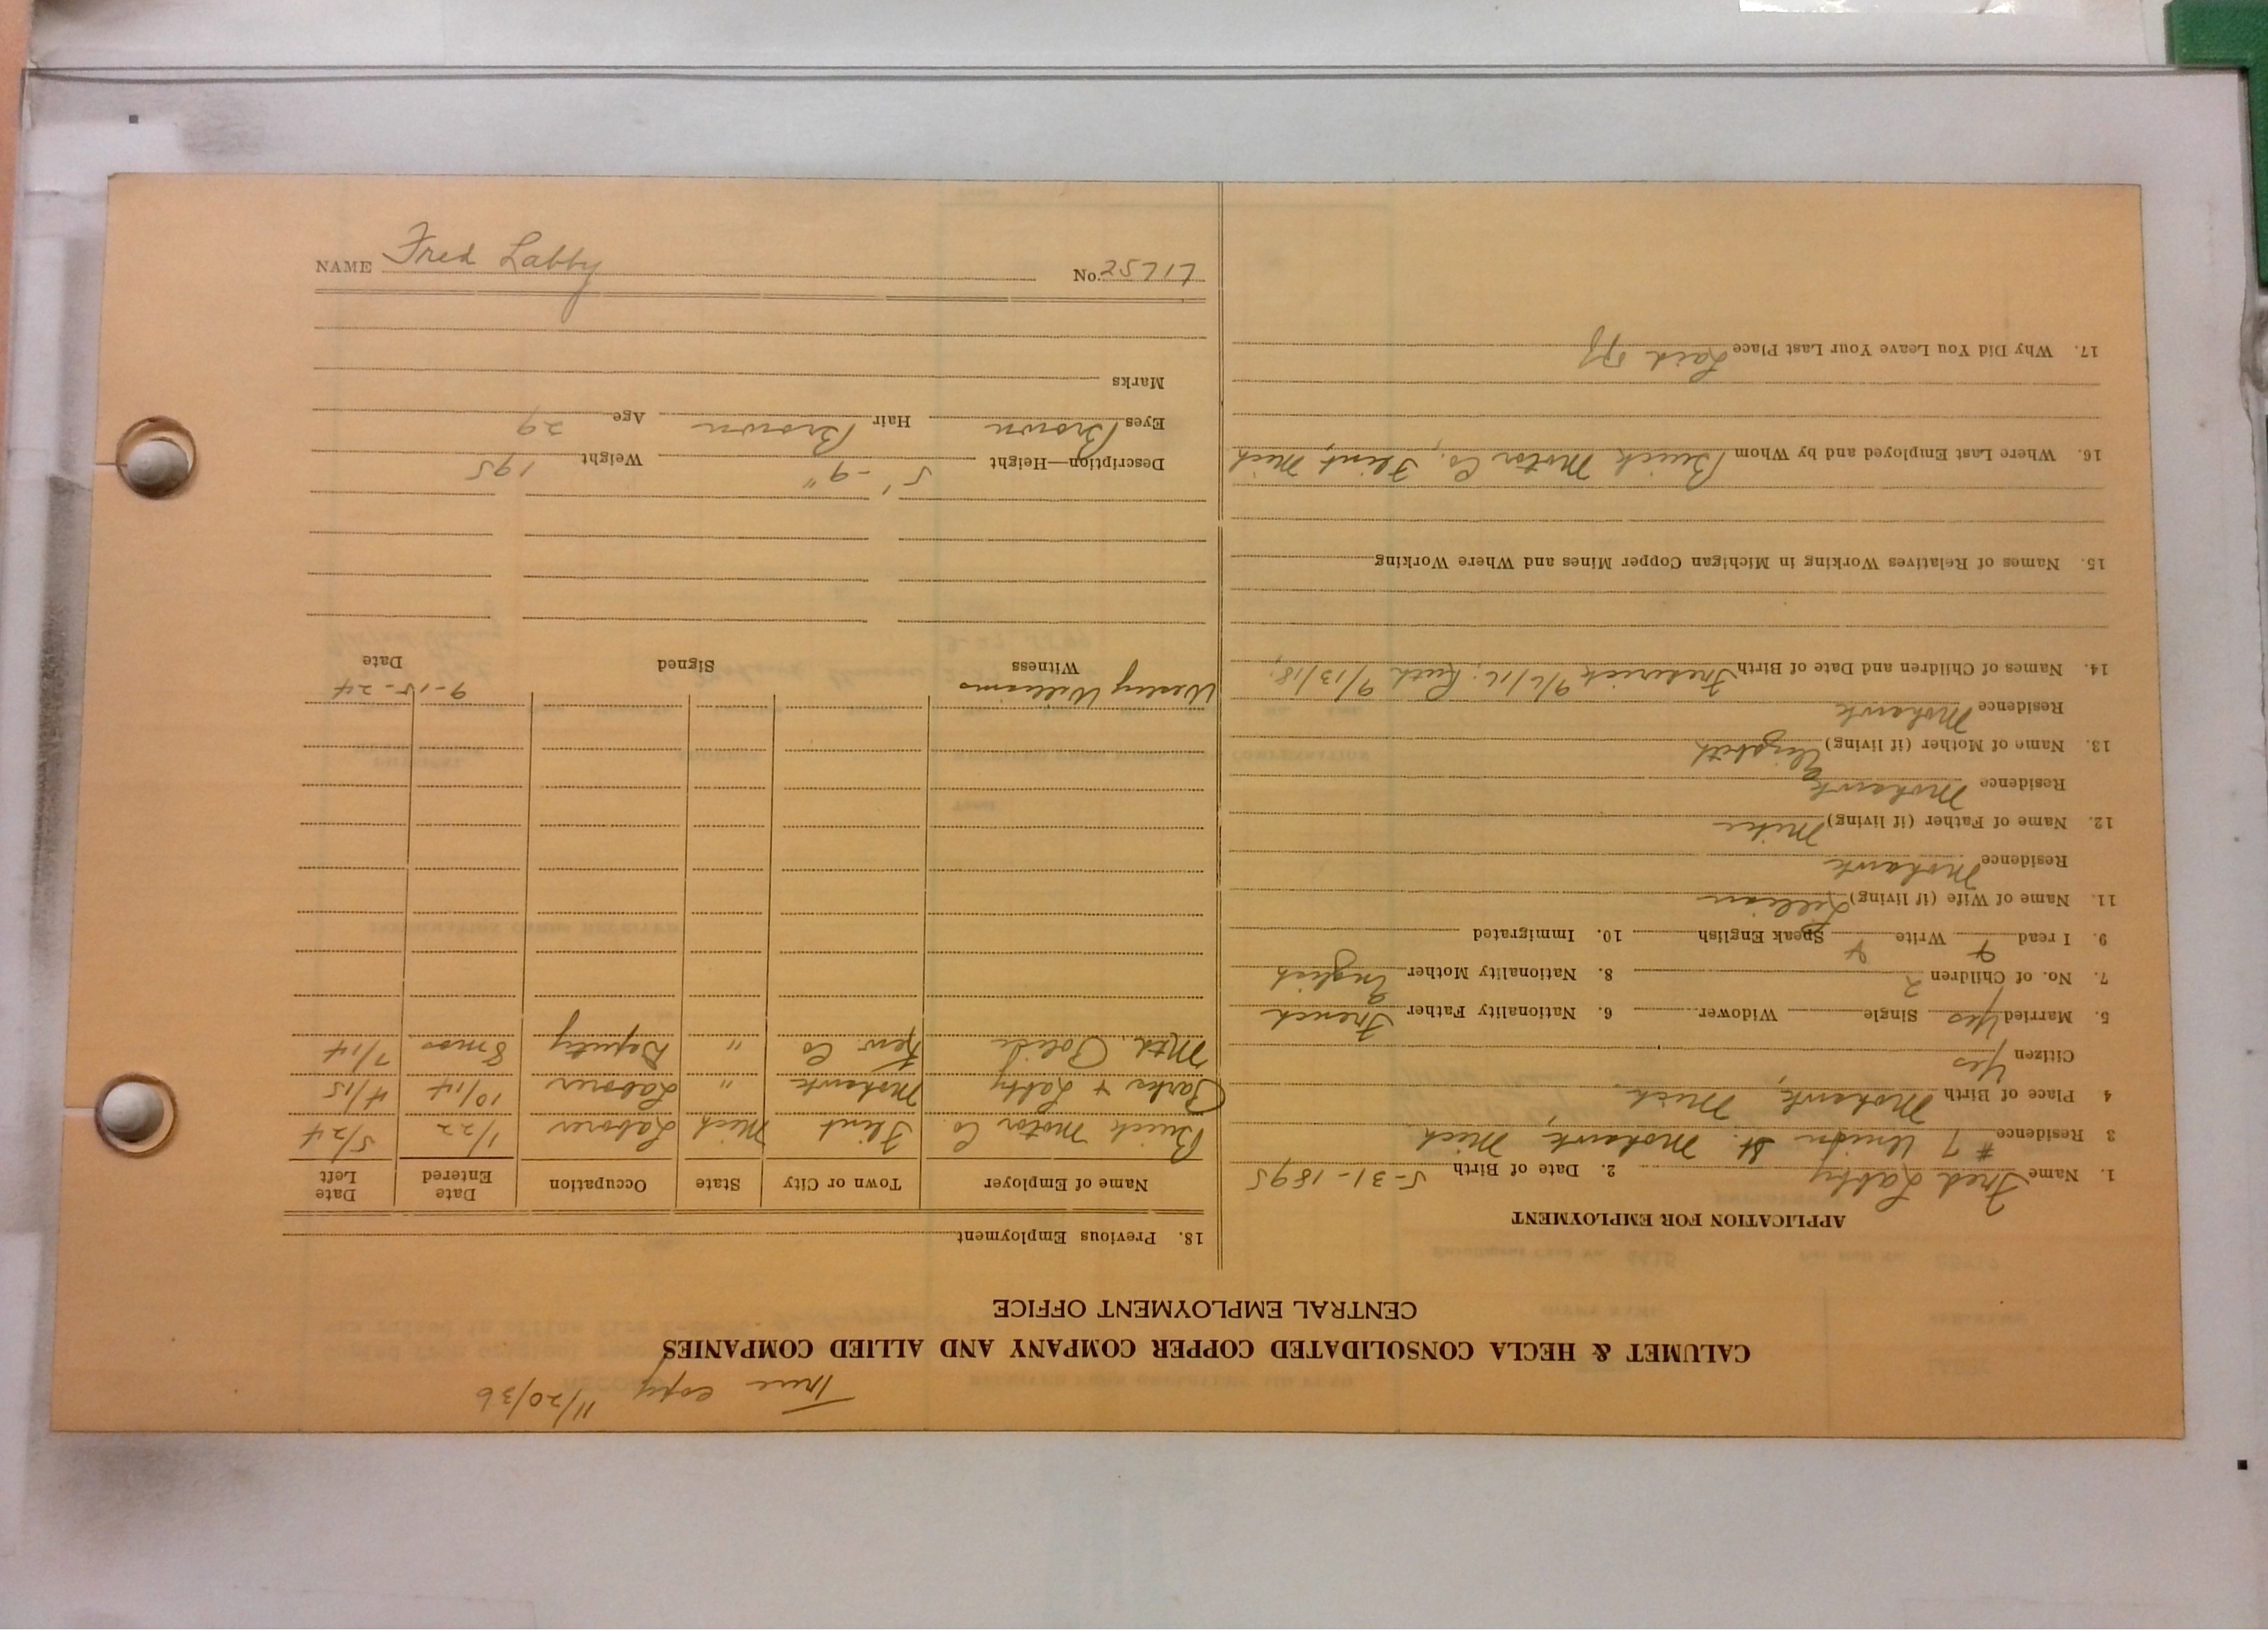 True copy 11/20/36
CALUMET & HECLA CONSOLIDATED COPPER COMPANY AND ALLIED COMPANIES
CENTRAL EMPLOYMENT OFFICE
APPLICATION FOR EMPLOYMENT
1. Name Fred Labby 2. Date of Birth 5-31-1895
3 Residence #7 Union St. Mohawk, Mich
4 Place of Birth Mohawk, Mich.
Citizen Yes
5. Married Yes Single Widower 6. Nationality Father French
7. No. of Children 2 8. Nationality Mother English
9. I read Write Speak English 10. Immigrated
11. Name of Wife (if living) Lillian
Residence Mohawk
12. Name of Father (if living) Mike
Residence Mohawk
13. Name of Mother (if living) Elizabeth
Residence Mohawk
14. Names of Children and Date of Birth Frederick 9/6/16; Ruth 9/13/18.
15. Names of Relatives Working in Michigan Copper Mines and Where Working
16. Where Last Employed and by Whom Buick Motor Co, Flint, Mich
17. Why Did You Leave Your Last Place Laid Off
18. Previous Employment
Name of Employer Town or City State Occupation Date Entered Date Left
Buick Motor Co. Flint Mich Laborer 1/22 5/24
& Labby Mohawk " Laborer 10/14 4/15
Mtd. Police Kew. Co " Deputy 8 mos 7/14
Wesley Williams 9-15-24
Witness Signed Date
Description—Height 5'-9" Weight 195
Eyes Brown Hair Brown Age 29
Marks
NAME Fred Labby No. 25717